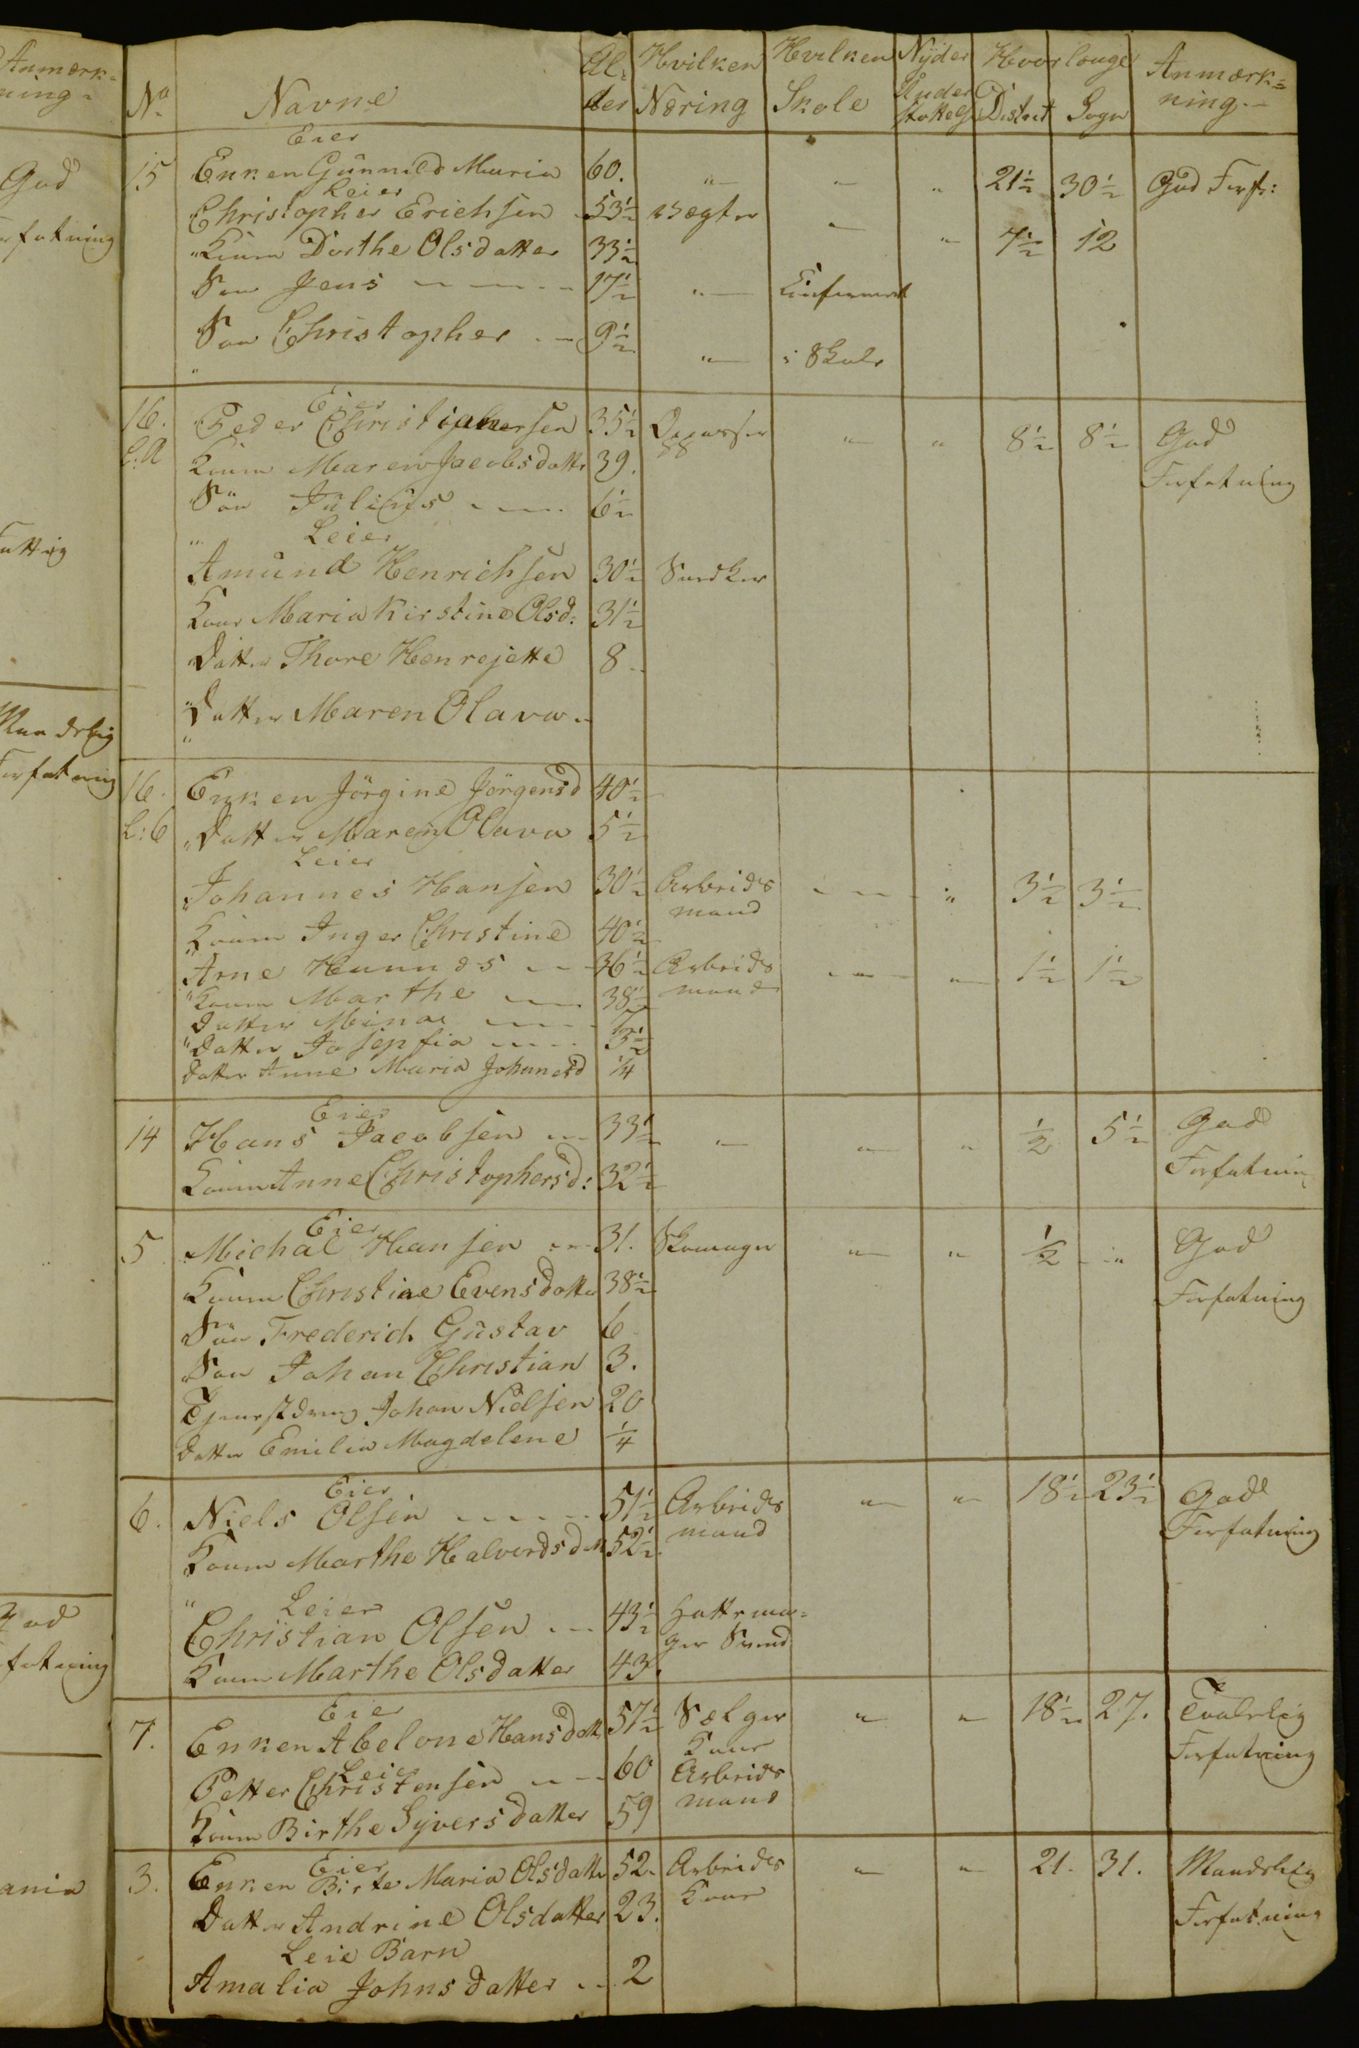 No Navne Al: der Hvilken Næring Hvilken Skole Nyder Under støttelse Hvor longe District Sogn Anmærk= ning.
Eier
15 Enken Gunnild Maria 60. " " " 21½ 30½ God Forf:
Leier
Christopher Erichsen 53½ Vægter " " 7½ 12
" Kone Dorthe Olsdatter 33½
Søn Jens 17½ " Confirmert
Søn Christopher 9½ " i Skole
Eier
16. L:A Peder Christophersen 35½ Oppasser " " 8½ 8½ God Forfatning
Kone Maren Jacobsdatter 39.
Søn Julius 6½
Leier
Amund Henrichsen 30½ Snedker
Kone Maria Kirstine Olsd: 31½
Datter Thore Henrejette 8
" Datter Maren Olava
16. L:6 Enken Jörgine Jörgensd 40½
" Datter Maren Olava 5½
Leier
Johannes Hansen 30½ Arbeids mand " " 3½ 3½
Kone Inger Christine 40½
Arne 36½ Arbeids mand " " 1½ 1½
" Kone Marthe 38½
Datter
" Datter Josepfia
Datter Anne Maria ¼
Eier
14 Hans Jacobsen 33½ " " " ½ 5½ God
Kone Anne Christophersd: 32½ Forfatning
Eier
5 Michal Hansen 31. Skomager " " ½ " God
Kone Christine Evensdatter 38½ Forfatning
Søn Frederich Gustav 6
Søn Johan Christian 3.
Tjenestdreng Johan Nielsen 20
Datter Emilia Magdelene ¼
Eier
6. Niels Olsen 51½ Arbeids mand " " 18½ 23½ God
Kone Marthe Halvordsdatter 52½ Forfatning
" Leier
Christian Olsen 43½ Hattema= ger Svend
Kone Marthe Olsdatter 43.
Eier
7. Enken Abelone Hansdatt 57½ Sælger Kone " " 18½ 27. Taalelig
Leie
Petter Christensen 60 Arbeids mand Forfatning
Kone Birthe Syversdatter 59
Eier
3. Enken Birte Maria Olsdatter 52. Arbeids Kone " " 21. 31. Maadelig
Datter Andrine Olsdatter 23. Forfatning
Leie Barn
Amalia Johnsdatter 2